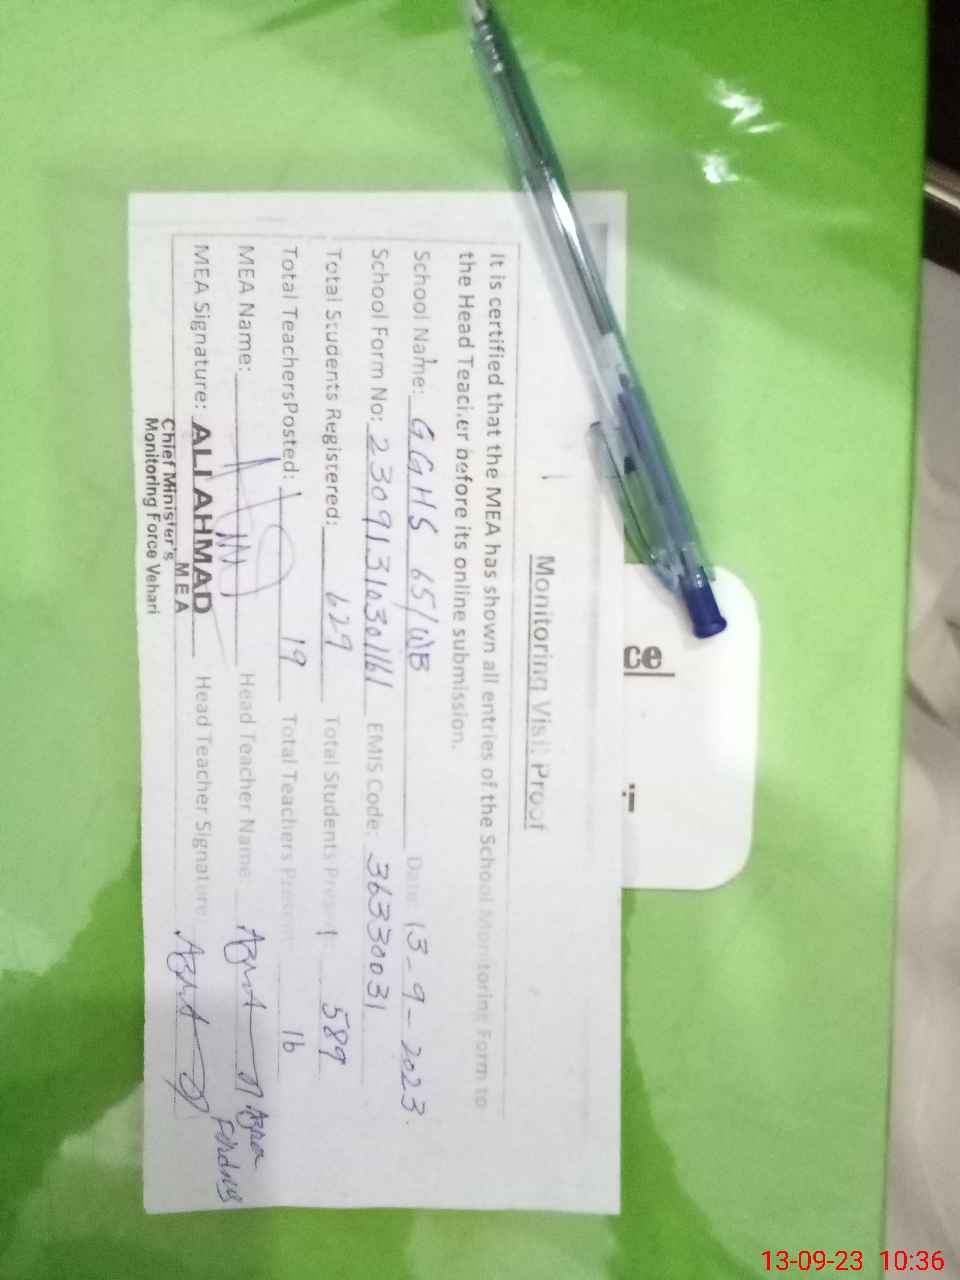 ce
Monitoring Visit Proof
It is certified that the MEA has shown all entries of the School Monitoring Form to
the Head Teacher before its online submission.
School Name: GGHS 65/WB Date: 13-9-2023.
School Form No: 23091310301161 EMIS Code: 36330031
Total Students Registered: 629 Total Students Present 589
Total TeachersPosted: 19 Total Teachers Present 16
MEA Name: Head Teacher Name:
MEA Signature: ALI AHMAD Head Teacher Signature
MEA
Chief Minister's
Monitoring Force Vehari
13-09-23 10:36